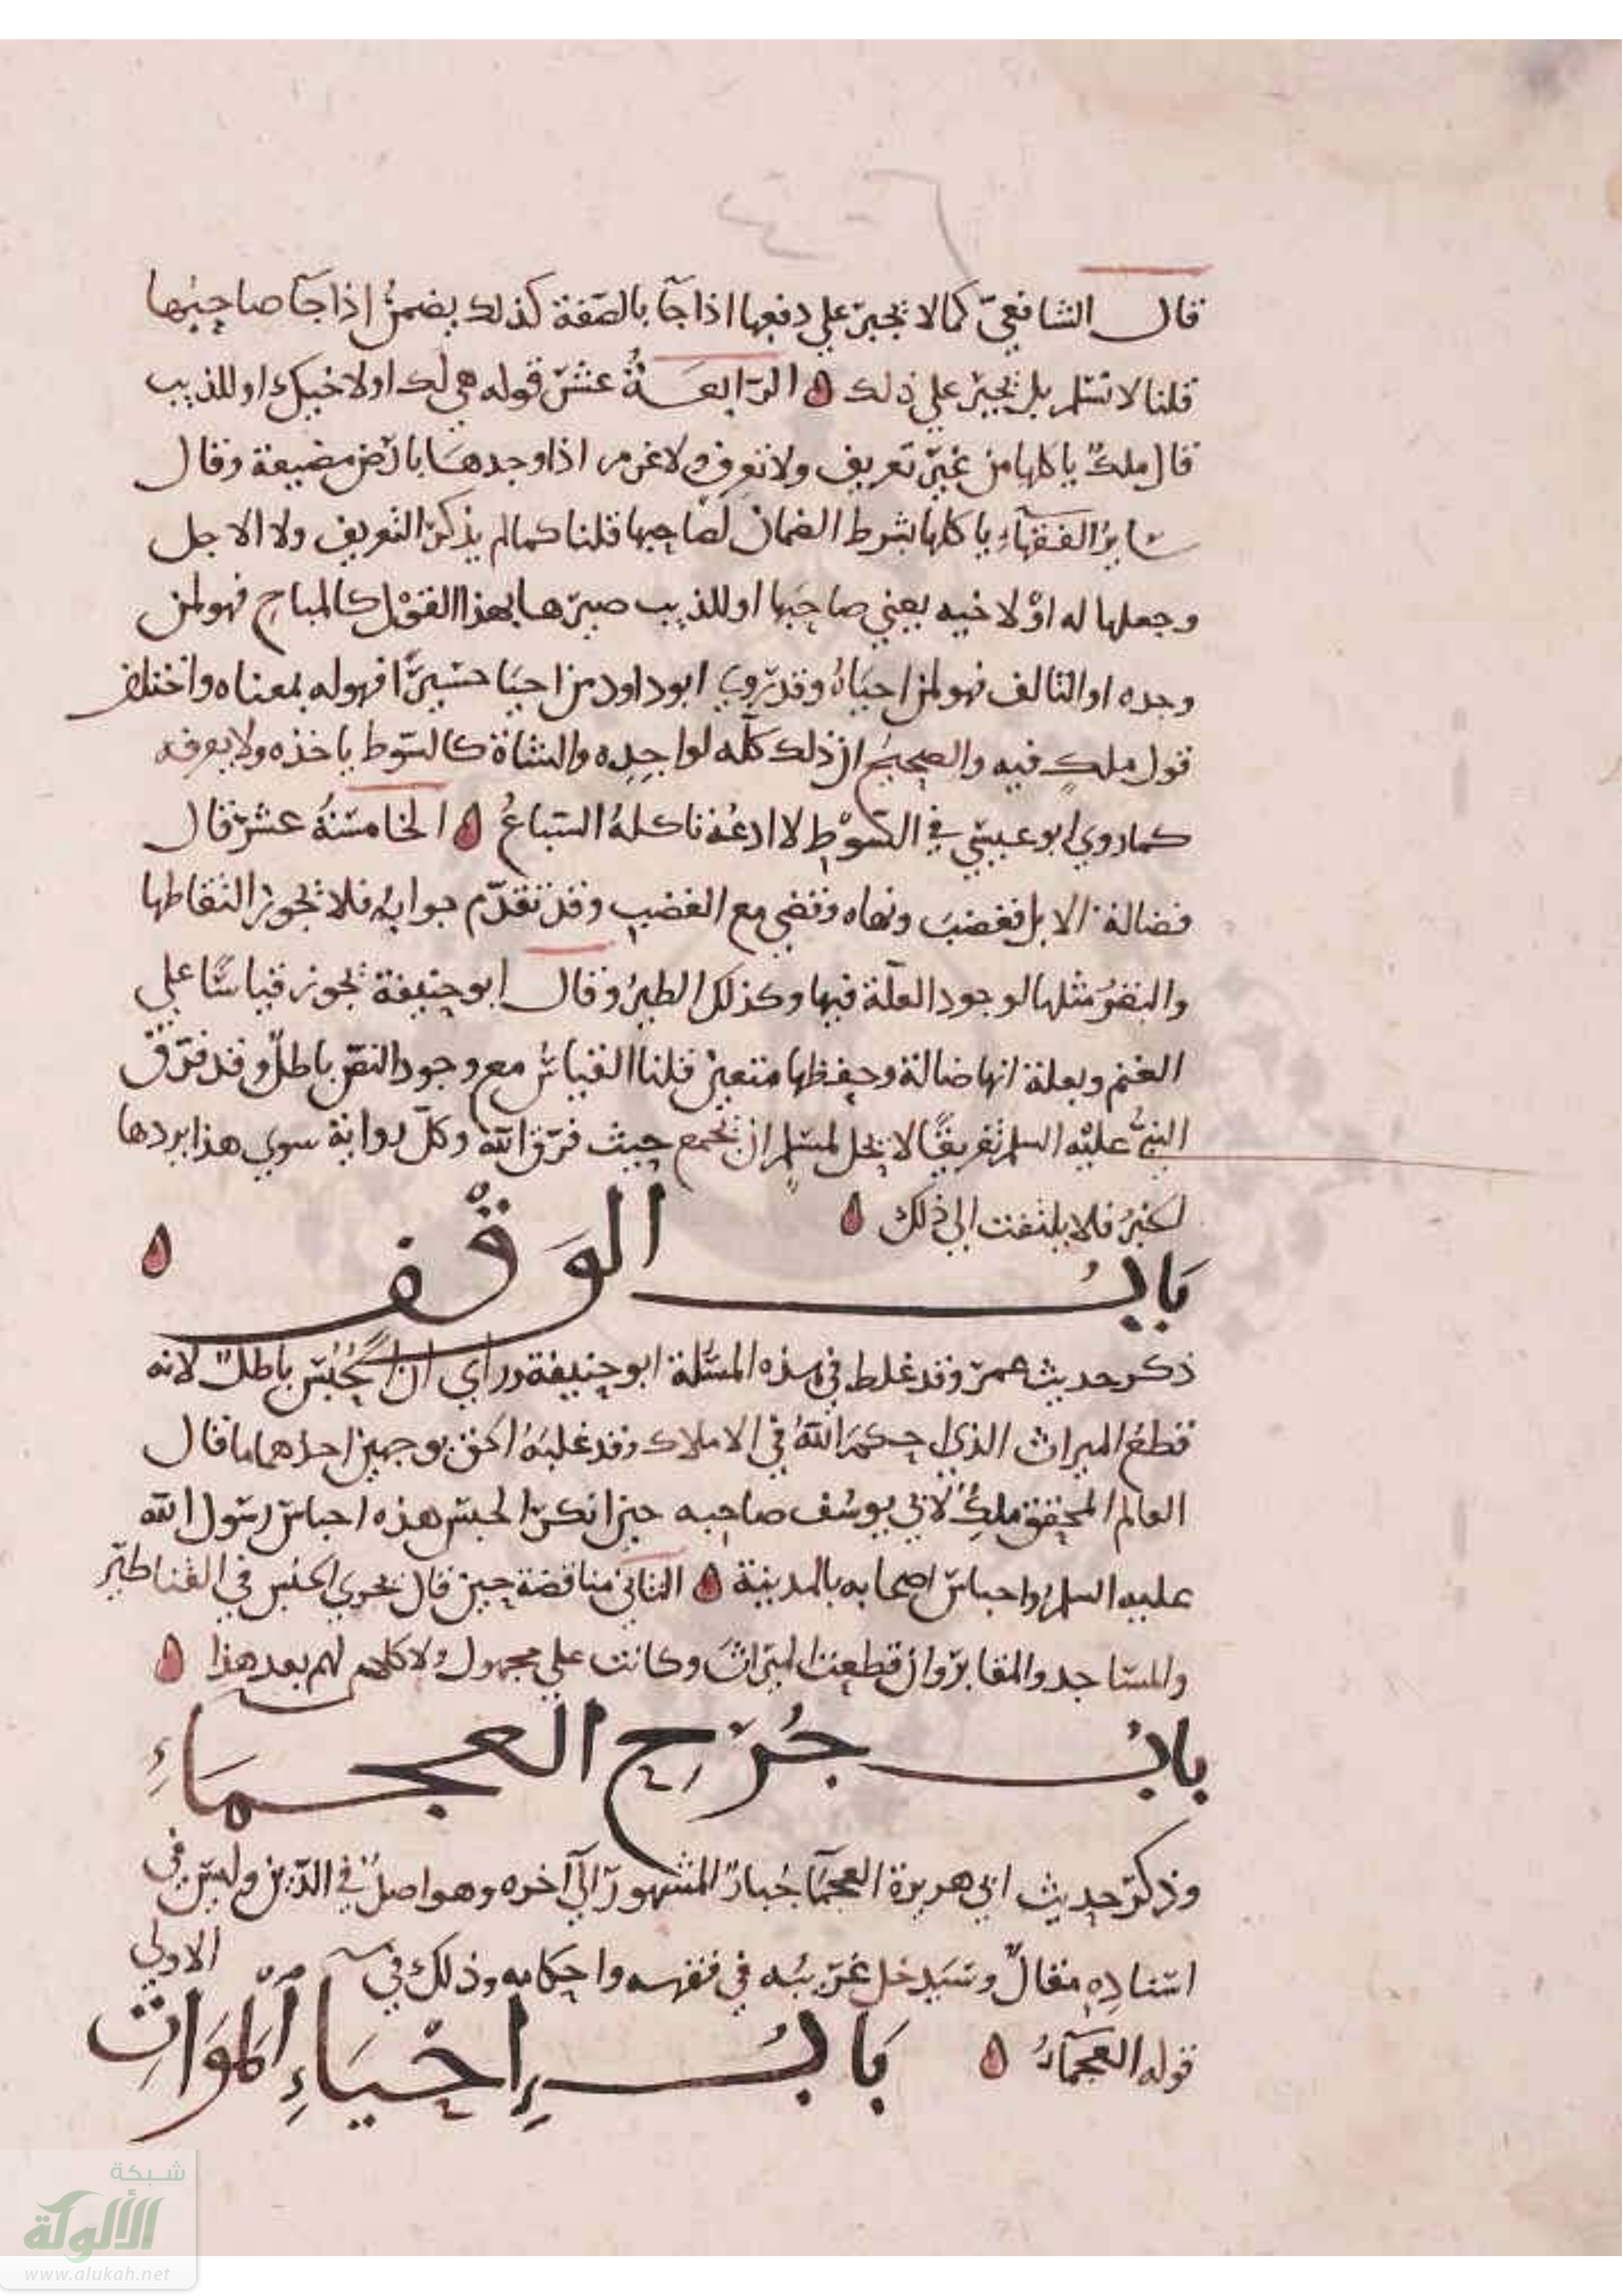 قال الشافعي كما لا يجبر علي دفعها اذا جآ بالصفة كذلك يضمن اذا جآ صاحبها
قلنا لا نسلم بل يجبر علي ذلك الرابعة عشر قوله هي لك او لاخيك او للذيب
قال ملك ياكلها من غير تعريف ولا تعرف ولا غرم اذا وجدها بارض مضيعة وقال
ساير الفقهآء ياكلها بشرط الضمان لصاحبها قلنا كما لم يذكر التعريف ولا الاجل
وجعلها له او لاخيه يعني صاحبها او للذيب صيرها بهذا القول كالمباح فهو لمن
وجده او التالف فهو لمن احياه وقد روي ابو داود من احيا حسيرا فهو له بمعناه واختلف
قول ملك فيه والصحيح ان ذلك كله لواجده والشاة كالسوط ياخذه ولا يعرفه
كما روي ابو عيسي في السوط لا ادعه تاكله السباع الخامسة عشر قال
فضالة الابل فغضب ونهاه وقضي مع الغضب وقد تقدم جوابه فلا يجوز التقاطها
والبقر مثلها لوجود العلة فيها وكذلك الطير وقال ابو حنيفة يجوز قياسا علي
الغنم وبعلة انها ضالة وحفظها متعين قلنا القياس مع وجود النص باطل وقد فرق
النبي عليه السلم تفريقا لا يحل لمسلم ان يجمع حيث فرق الله وكل رواية سوي هذا يردها
الخبر فلا يلتفت الي ذلك
باب الوقف
ذكر حديث عمر وقد غلط في هذه المسئلة ابو حنيفة وراي ان الحبس باطل لانه
قطع الميراث الذي احكم الله في الاملاك وقد غلبه الحق بوجهين احدهما ما قال
العالم المحقق ملك لابي يوسف صاحبه حين انكر الحبس هذه احباس رسول الله
عليه السلم واحباس اصحابه بالمدينة الثاني مناقضة حين قال يجوز الحبس في القناطير
والمساجد والمقابر وان قطعت الميراث وكانت علي مجهول ولا كلام لهم بعد هذا
باب جرح العجماء
وذكر حديث ابي هريرة العجمآ جبار المشهور الي آخره وهو اصل في الدين وليس في
اسناده مقال وسيدخل غريبه في فقهه واحكامه وذلك في
الاولي
قوله العجمآء
باب إحياء الموات
شبكة
الألوكة
www.alukah.net